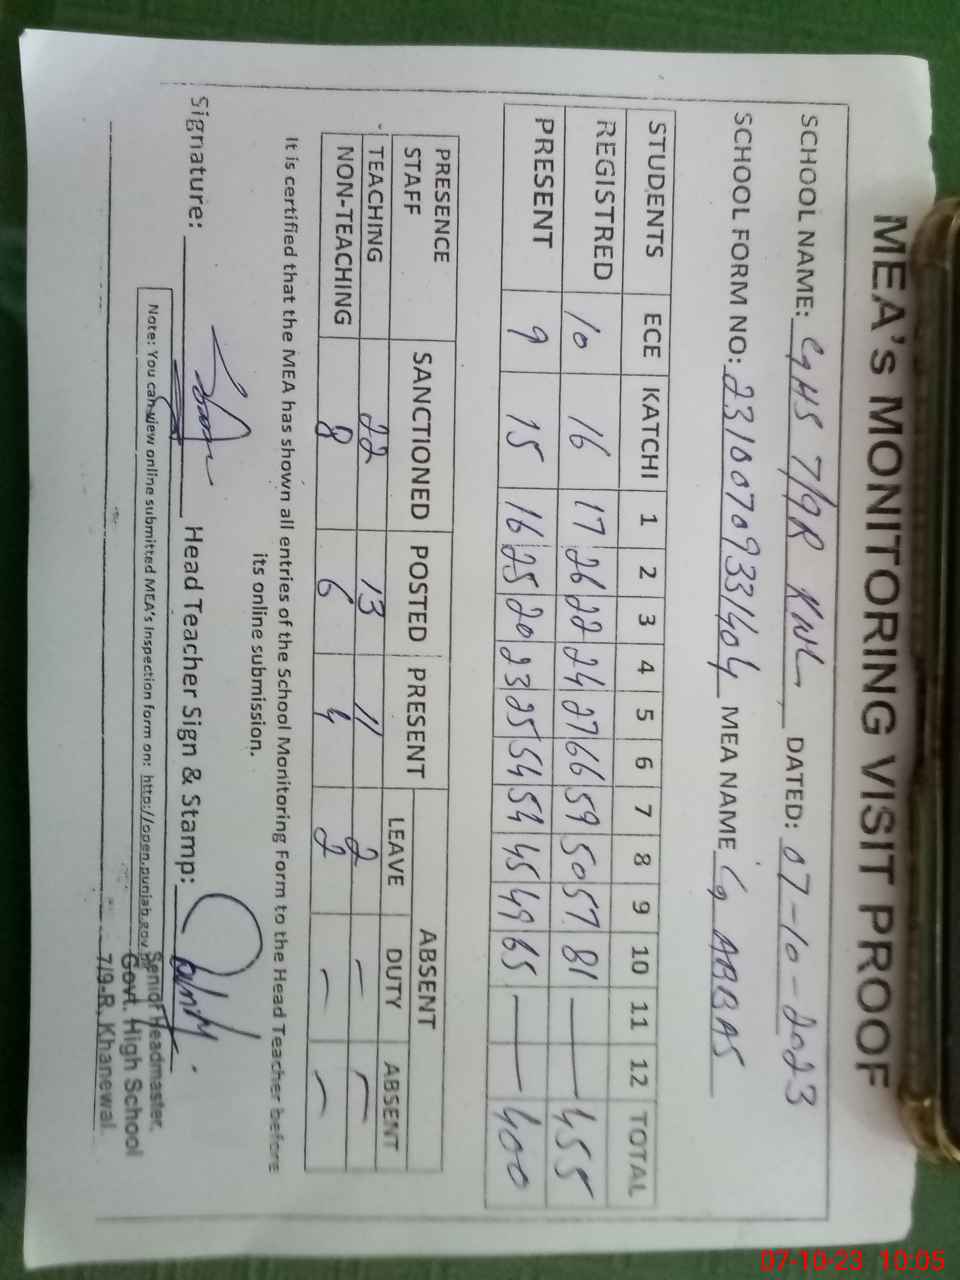 MEA's MONITORING VISIT PROOF
SCHOOL NAME: GHS 7/9R KWL DATED: 07-10-2023
SCHOOL FORM NO: 23100709331404 MEA NAME ABBAS
STUDENTS ECE KATCHI 1 2 3 4 5 6 7 8 9 10 11 12 TOTAL
REGISTRED 10 16 17 26 22 24 27 66 59 50 57 81 — 455
PRESENT 9 15 16 25 20 23 25 54 54 45 49 65 — 400
PRESENCE STAFF SANCTIONED POSTED PRESENT ABSENT
LEAVE DUTY ABSENT
TEACHING 22 13 11 2 — —
NON-TEACHING 8 6 4 2 — —
It is certified that the MEA has shown all entries of the School Monitoring Form to the Head Teacher before
its online submission.
Signature: Head Teacher Sign & Stamp:
Note: You can view online submitted MEA's Inspection form on: http://open.punjab.gov.
Senior Headmaster,
Govt. High School
7/9-R, Khanewal.
07-10-23 10:05